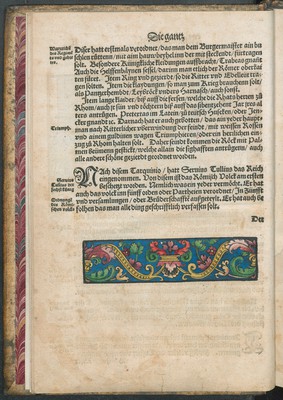 Die gantz
Diser hatt erstmals verordnet / das man dem Burgermeister ein bu
schlen rütten / mit aim hawbeyhel inn der mit steckende / fürtragen
solt. Besondere Künigkliche kleidungen auffbracht / Trabea gnañt
Auch die Helffenbeynen sessel / darinn man etlich der Römer oberkai
ten füret. Item Ring und gezierd / so die Ritter und Edelleüt trä=
gen solten. Item die klaydungen / so man zum Krieg brauchen solt /
als Pantzerhembde / Lepsröck unders Harnasch / auch sonst.
Item lange klaider / biß auff die fersen / welche die Rhatsherrn zů
Rhom / auch jr sün und töchtern biß auff das
ten antrügen. Pretextas im Latein zů teütsch
der gnandt. Darnach hat er auch gebotten / das ain yeder haupt=
man nach Ritterlicher überwindung der feinde / mit weissen Rossen
und ainem guldinen wagen Triumphieren / oder ein herrlichen ein=
zug zů Rhom halten solt. Daher seind kommen die Röck mit Pal=
men beümenn gestickt / welche allain die sighafften antrügenn / auch
alle andere schöne gezierde geordnet worden.
Triumph.
NAch disem Tarquinio / hatt Servius Tullius das Reich
eingenommen. Von disem ist das Römisch volck am ersten
Beschetzt worden. Nemlich was ein yeder vermöcht. Er hat
auch das volck inn fünff orden oder Partheien verordnet / In Zünfft
und versamlungen / oder Brüderschafft auffgeteylt. Er hat auch be
folhen das man alle ding geschrifftlich verfassen solt.
Servius
Tullius
Der